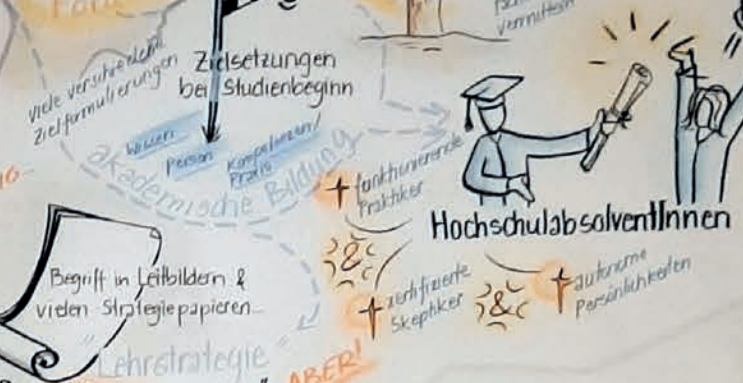 vermitteln
viele verschiedene
Zielformulierungen
Zielsetzungen
bei Studienbeginn
Wissen
Person
Kompetenzen/
Praxis
akademische Bildung
+ funktionierende
Praktiker
HochschulabsolventInnen
&
+ zertifizierte
Skeptiker
&
+ autonome
Persönlichkeiten
Begriff in Leitbildern &
vielen Strategiepapieren...
"Lehrstrategie"
ABER!